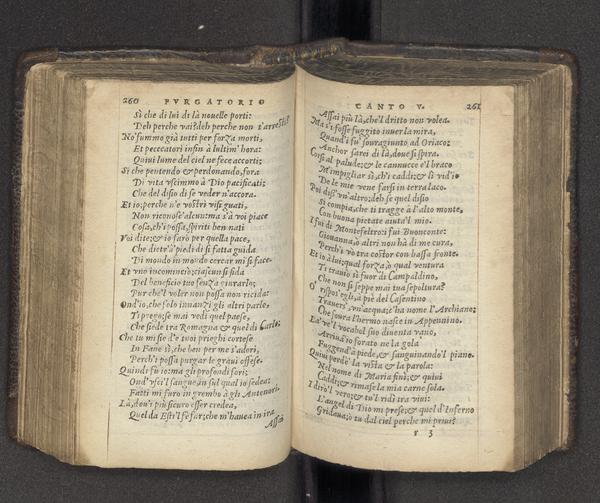 260 PVRGATORIO
Sì che di lui di là nouelle porti:
Deh perche vai? deh perche non t'arresti?
No' summo già tutti per forza morti,
Et peccatori infin à lultim' hora:
Quiui lume del ciel ne fece accorti;
Si che pentendo & perdonando, fora
Di vita vscimmo à Dio pacificati;
Che del disio di se veder n'accora.
Et io; perche ne vostri visi guati,
Non riconosc' alcun: ma s'à voi piace
Cosa, ch'i possa, spiriti ben nati
Voi dite; & io farò per quella pace,
Che dietr'à piedi di sì fatta guida
Di mondo in mondo cercar mi si face.
Et vno incominciò; ciascun si fida
Del beneficio tuo senza giurarlo;
Pur che'l voler non possa non ricida:
Ond'io, che solo innanzi gli altri parlo,
Ti prego; se mai vedi quel paese,
Che siede tra Romagna & quel di Carlo;
Che tu mi sie de tuoi prieghi cortese
In Fano sì, che ben per me s'adori,
Perch'i possa purgar le graui offese.
Quindi fu io: ma gli profondi fori;
Ond' vsci'l sangue, in sul qual io sedea;
Fatti mi furo in grembo à gli Antenori,
Là, dou'i più sicuro esser credea,
Quel da Esti'l fe far; che m'hauea in ira
Assai
CANTO V. 261
Assai più là, che'l dritto non volea.
Ma s'i fosse fuggito inuer la mira,
Quand'i fu' souragiunto ad Oriaco;
Anchor sarei di là, doue si spira.
Corsi al palude; & le cannucce e'l braco
M'impigliar sì, ch'i caddi; & lì vid'io
De le mie vene farsi in terra laco.
Poi diss' vn' altro; deh se quel disio
Si compia, che ti tragge à l'alto monte,
Con buona pietate aiuta'l mio.
I fui di Montefeltro: i fui Buonconte:
Giouanna, ò altri non hà di me cura,
Perch'i vò tra costor con bassa fronte.
Et io à lui; qual forza, ò qual ventura
Ti trauiò sì fuor di Campaldino,
Che non si seppe mai tua sepoltura?
O' rispos' egli, à piè del Casentino
Trauers' vn' acqua, c'hà nome l'Archiano;
Che soura l'hermo nasce in Appennino.
La' ve'l vocabol suo diuenta vano,
Arriua'io forato ne la gola
Fuggend'à piede, & sanguinando'l piano.
Quiui perdè la vista & la parola:
Nel nome di Maria finì; & quiui
Caddi; & rimase la mia carne sola.
I dirò'l vero; & tu'l ridì tra viui:
L'angel di Dio mi prese; & quel d'Inferno
Gridaua; ò tu dal ciel perche mi priui?
r 3